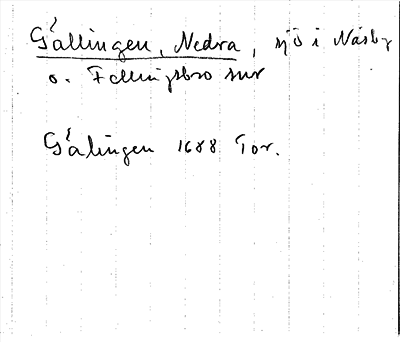 Gällingen, Nedra, sjö i Näsby
o. Fellingsbro snr
Gälingen 1688 Tor.